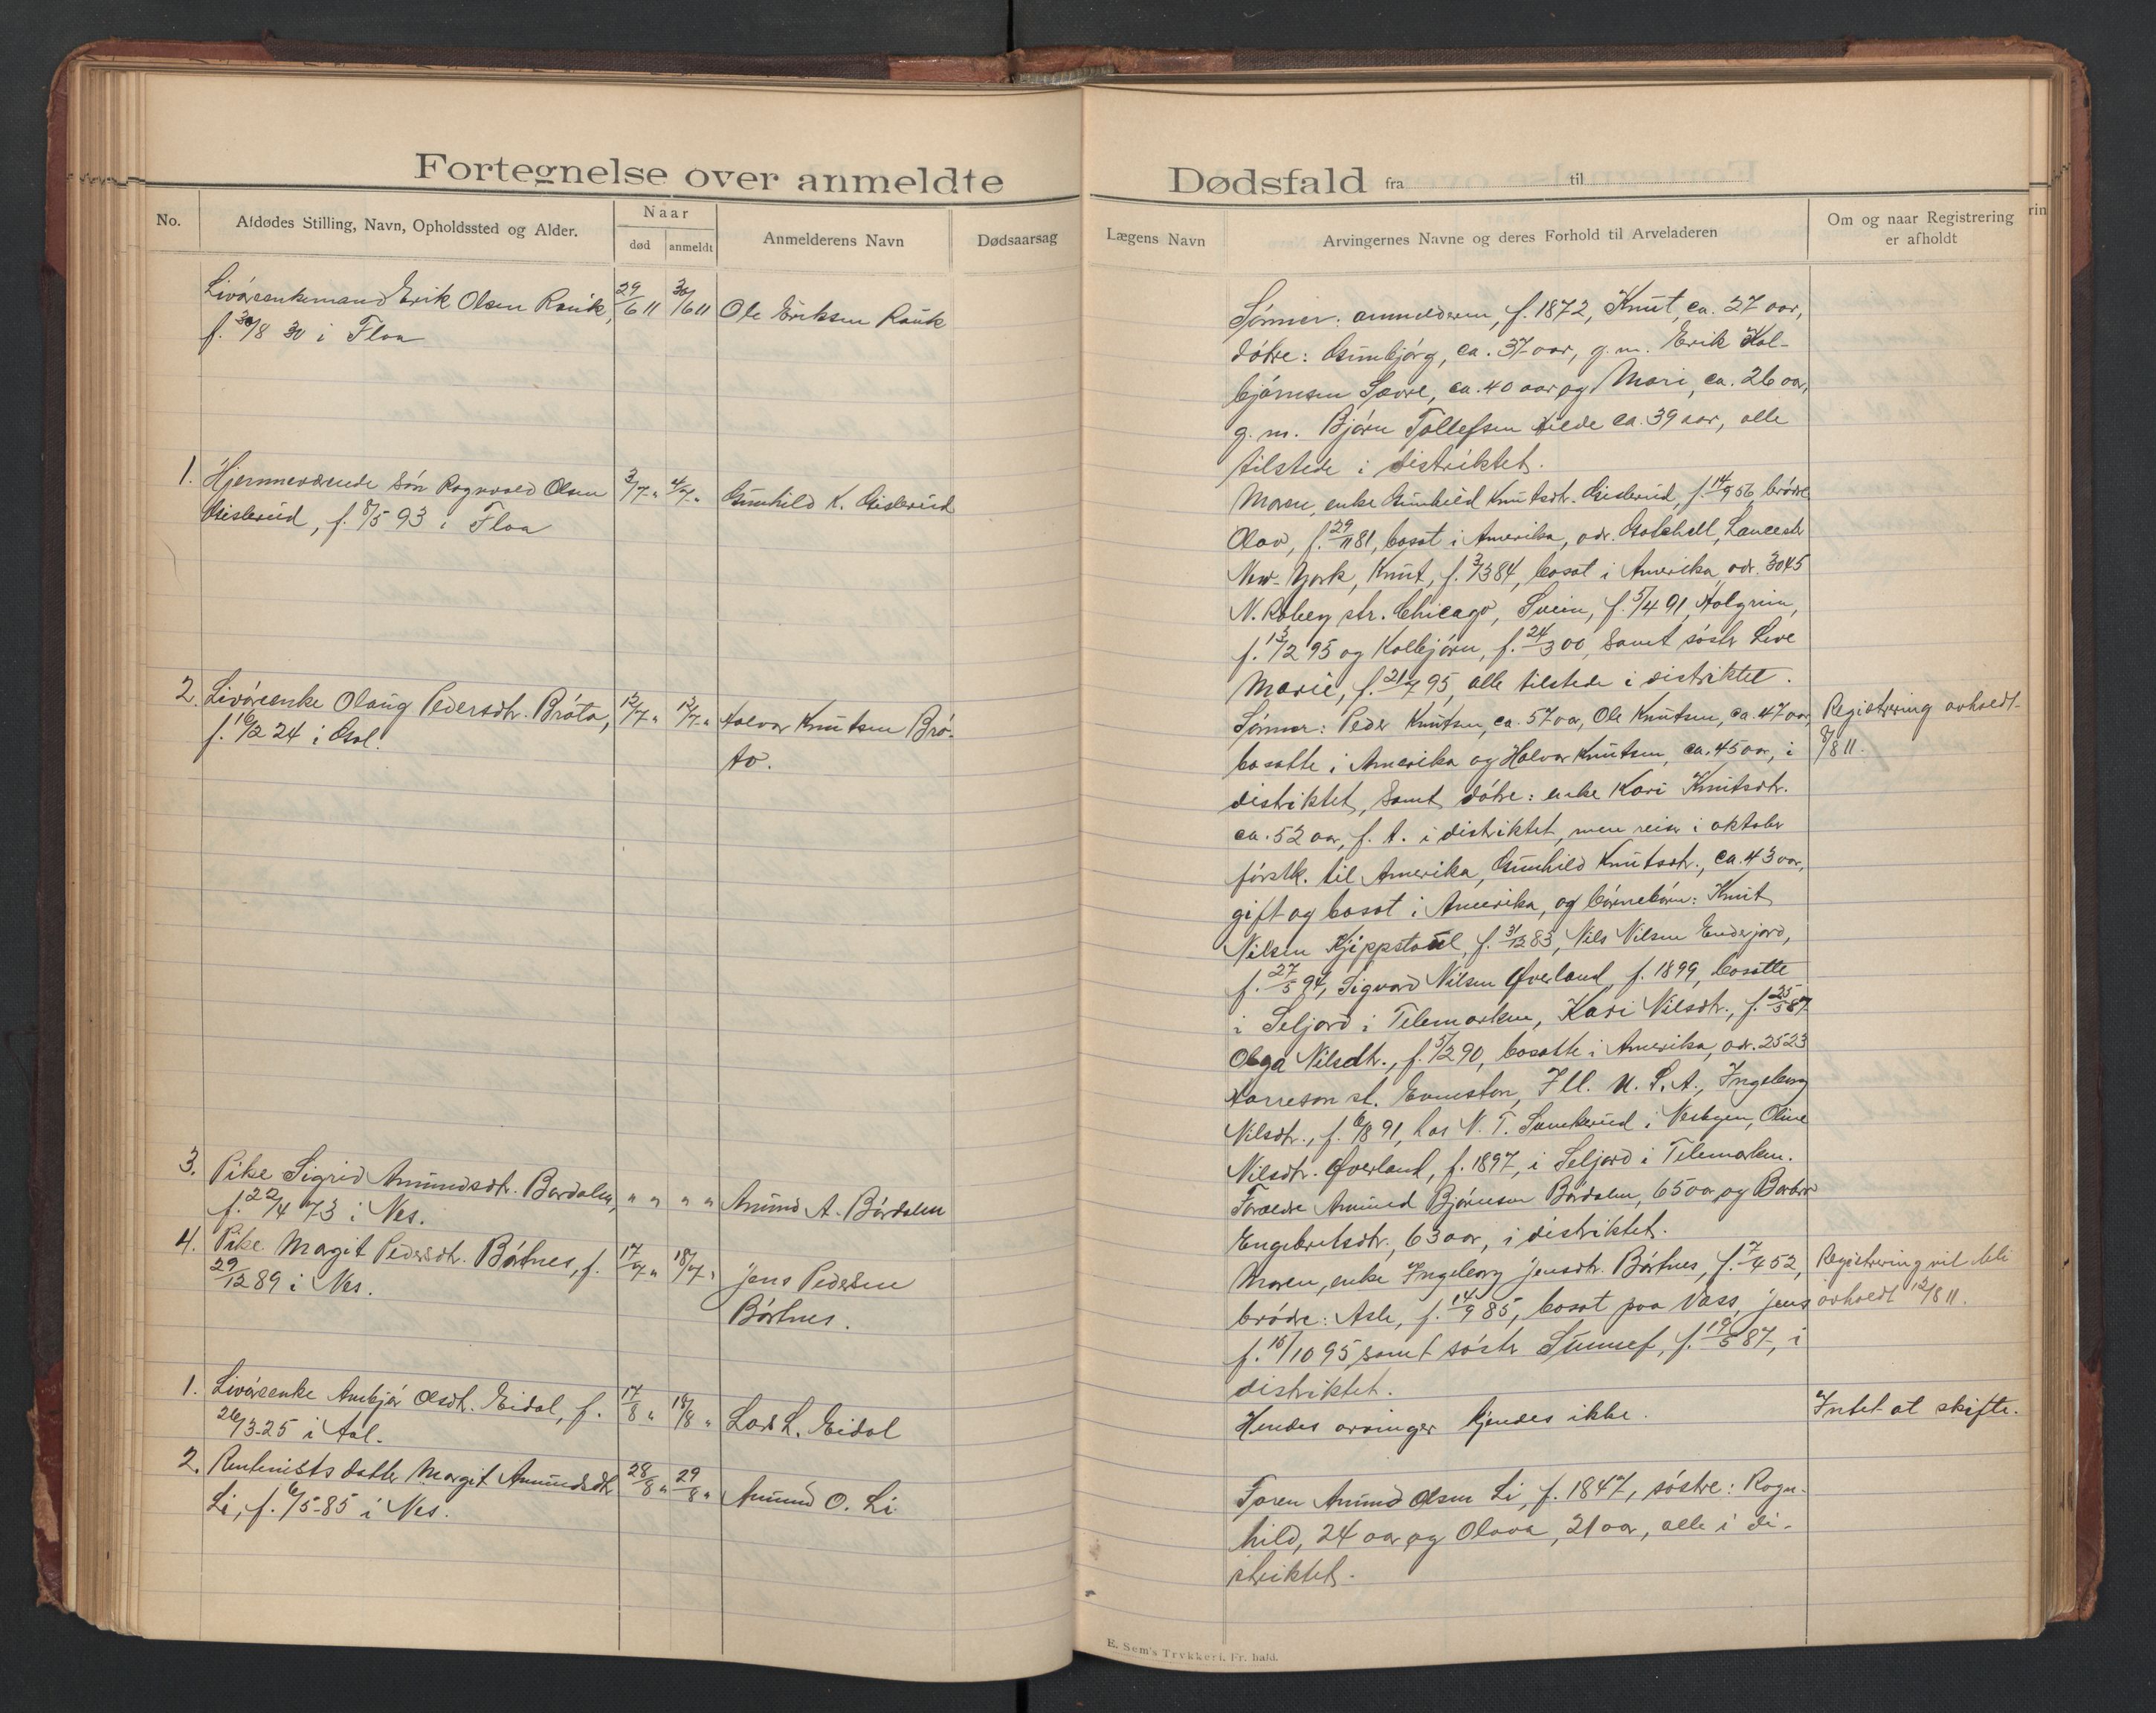 Fortegnelse over anmeldte
No.
Afdødes Stilling, Navn, Opholdssted og Alder.
Naar
død
anmeldt
Anmelderens Navn
Dødsaarsag
Livørsenkemand Erik Olsen Rauk,
f. 30/8 30 i Flaa
29/6 11
30/6 11
Ole Eriksen Rauk
1. Hjemmeværende søn Ragnvald Olsen
Gislerud, f. 8/5 93 i Flaa
3/7 "
4/7 "
Gunhild K. Gislerud
2. Livørsenke Olaug Pedersdtr. Bråta,
f. 16/2 24 i Gol.
12/7 "
12/7 "
Halvor Knutsen Brå-
ta.
3. Pike Sigrid Amundsdtr. Bårdalen,
f. 22/4 73 i Nes.
" "
" "
Amund A. Bårdalen
4. Pike Margit Pedersdtr. Børtnes, f.
29/12 89 i Nes.
17/7 "
18/7 "
Jens Pedersen
Børtnes.
1. Livørsenke Ambjør Olsdtr. Eidal, f.
26/3-25 i Aal.
17/8 "
18/8 "
Lars L. Eidal
2. Rentenists datter Margit Amundsdtr
Li, f. 6/5-85 i Nes.
28/8 "
29/8 "
Amund O. Li
Dødsfald fra til
Lægens Navn
Arvingernes Navne og deres Forhold til Arveladeren
Om og naar Registrering
er afholdt
rin
Sønner: anmelderen, f. 1872, Knut, ca. 27 aar,
døtre: Gunbjørg, ca. 37 aar, g. m. Erik Kol-
bjørnsen Sævre, ca. 40 aar og Mari, ca. 26 aar,
g. m. Bjørn Tollefsen Hilde ca. 39 aar, alle
tilstede i distriktet.
Moren, enke Gunhild Knutsdtr. Gislerud, f. 14/9 56, brødre
Olav, f. 29/11 81, bosat i Amerika, adr. Gatchell, Lancester
New-York, Knut, f. 3/3 84, bosat i Amerika, adr. 3045
N. Robey str. Chicago, Svein, f. 5/4 91, Halgrim,
f. 13/2 95 og Kolbjørn, f. 24/3 00, samt søster Live
Marie, f. 21/7 95, alle tilstede i distriktet.
Sønner: Peder Knutsen, ca. 57 aar, Ole Knutsen, ca. 47 aar,
bosatte i Amerika og Halvor Knutsen, ca. 45 aar, i
distriktet, samt døtre: enke Kari Knutsdtr.
ca. 52 aar, f. t. i distriktet, men reiser i oktober
førstk. til Amerika, Gunhild Knutsdtr., ca. 43 aar,
gift og bosat i Amerika, og børnebørn: Knut
Nilsen Kjippstaul, f. 31/12 83, Nils Nilsen Enderjord,
f. 27/5 94, Sigvard Nilsen Øverland, f. 1899, bosatte
i Seljord i Telemarken, Kari Nilsdtr., f. 25/5 87
Olga Nilsdtr., f. 5/2 90, bosatte i Amerika, adr. 2523
Harreson st. Evenston, Ill. U. S. A., Ingeborg
Nilsdtr., f. 6/8 91, hos N. T. Sunkerud i Nesbyen, Oline
Nilsdtr. Øverland, f. 1897, i Seljord i Telemarken.
Foreldre Amund Bjørnsen Bårdalen, 65 aar og Barbro
Engebretsdtr., 63 aar, i distriktet.
Moren, enke Ingeborg Jensdtr. Børtnes, f. 7/4 52,
brødre: Asle, f. 14/9 85, bosat paa Vass, Jens
f. 15/10 95, samt søster Sunnef, f. 19/5 87, i
distriktet.
Hendes arvinger kjendes ikke.
Faren Amund Olsen Li, f. 1847, søstre: Ragn-
hild, 24 aar og Olava, 21 aar, alle i di-
striktet.
Registrering avholdt
8/8 11.
Registrering vil bli
avholdt 12/8 11.
Intet at skifte.
E. Sem's Trykkeri, Fr. hald.